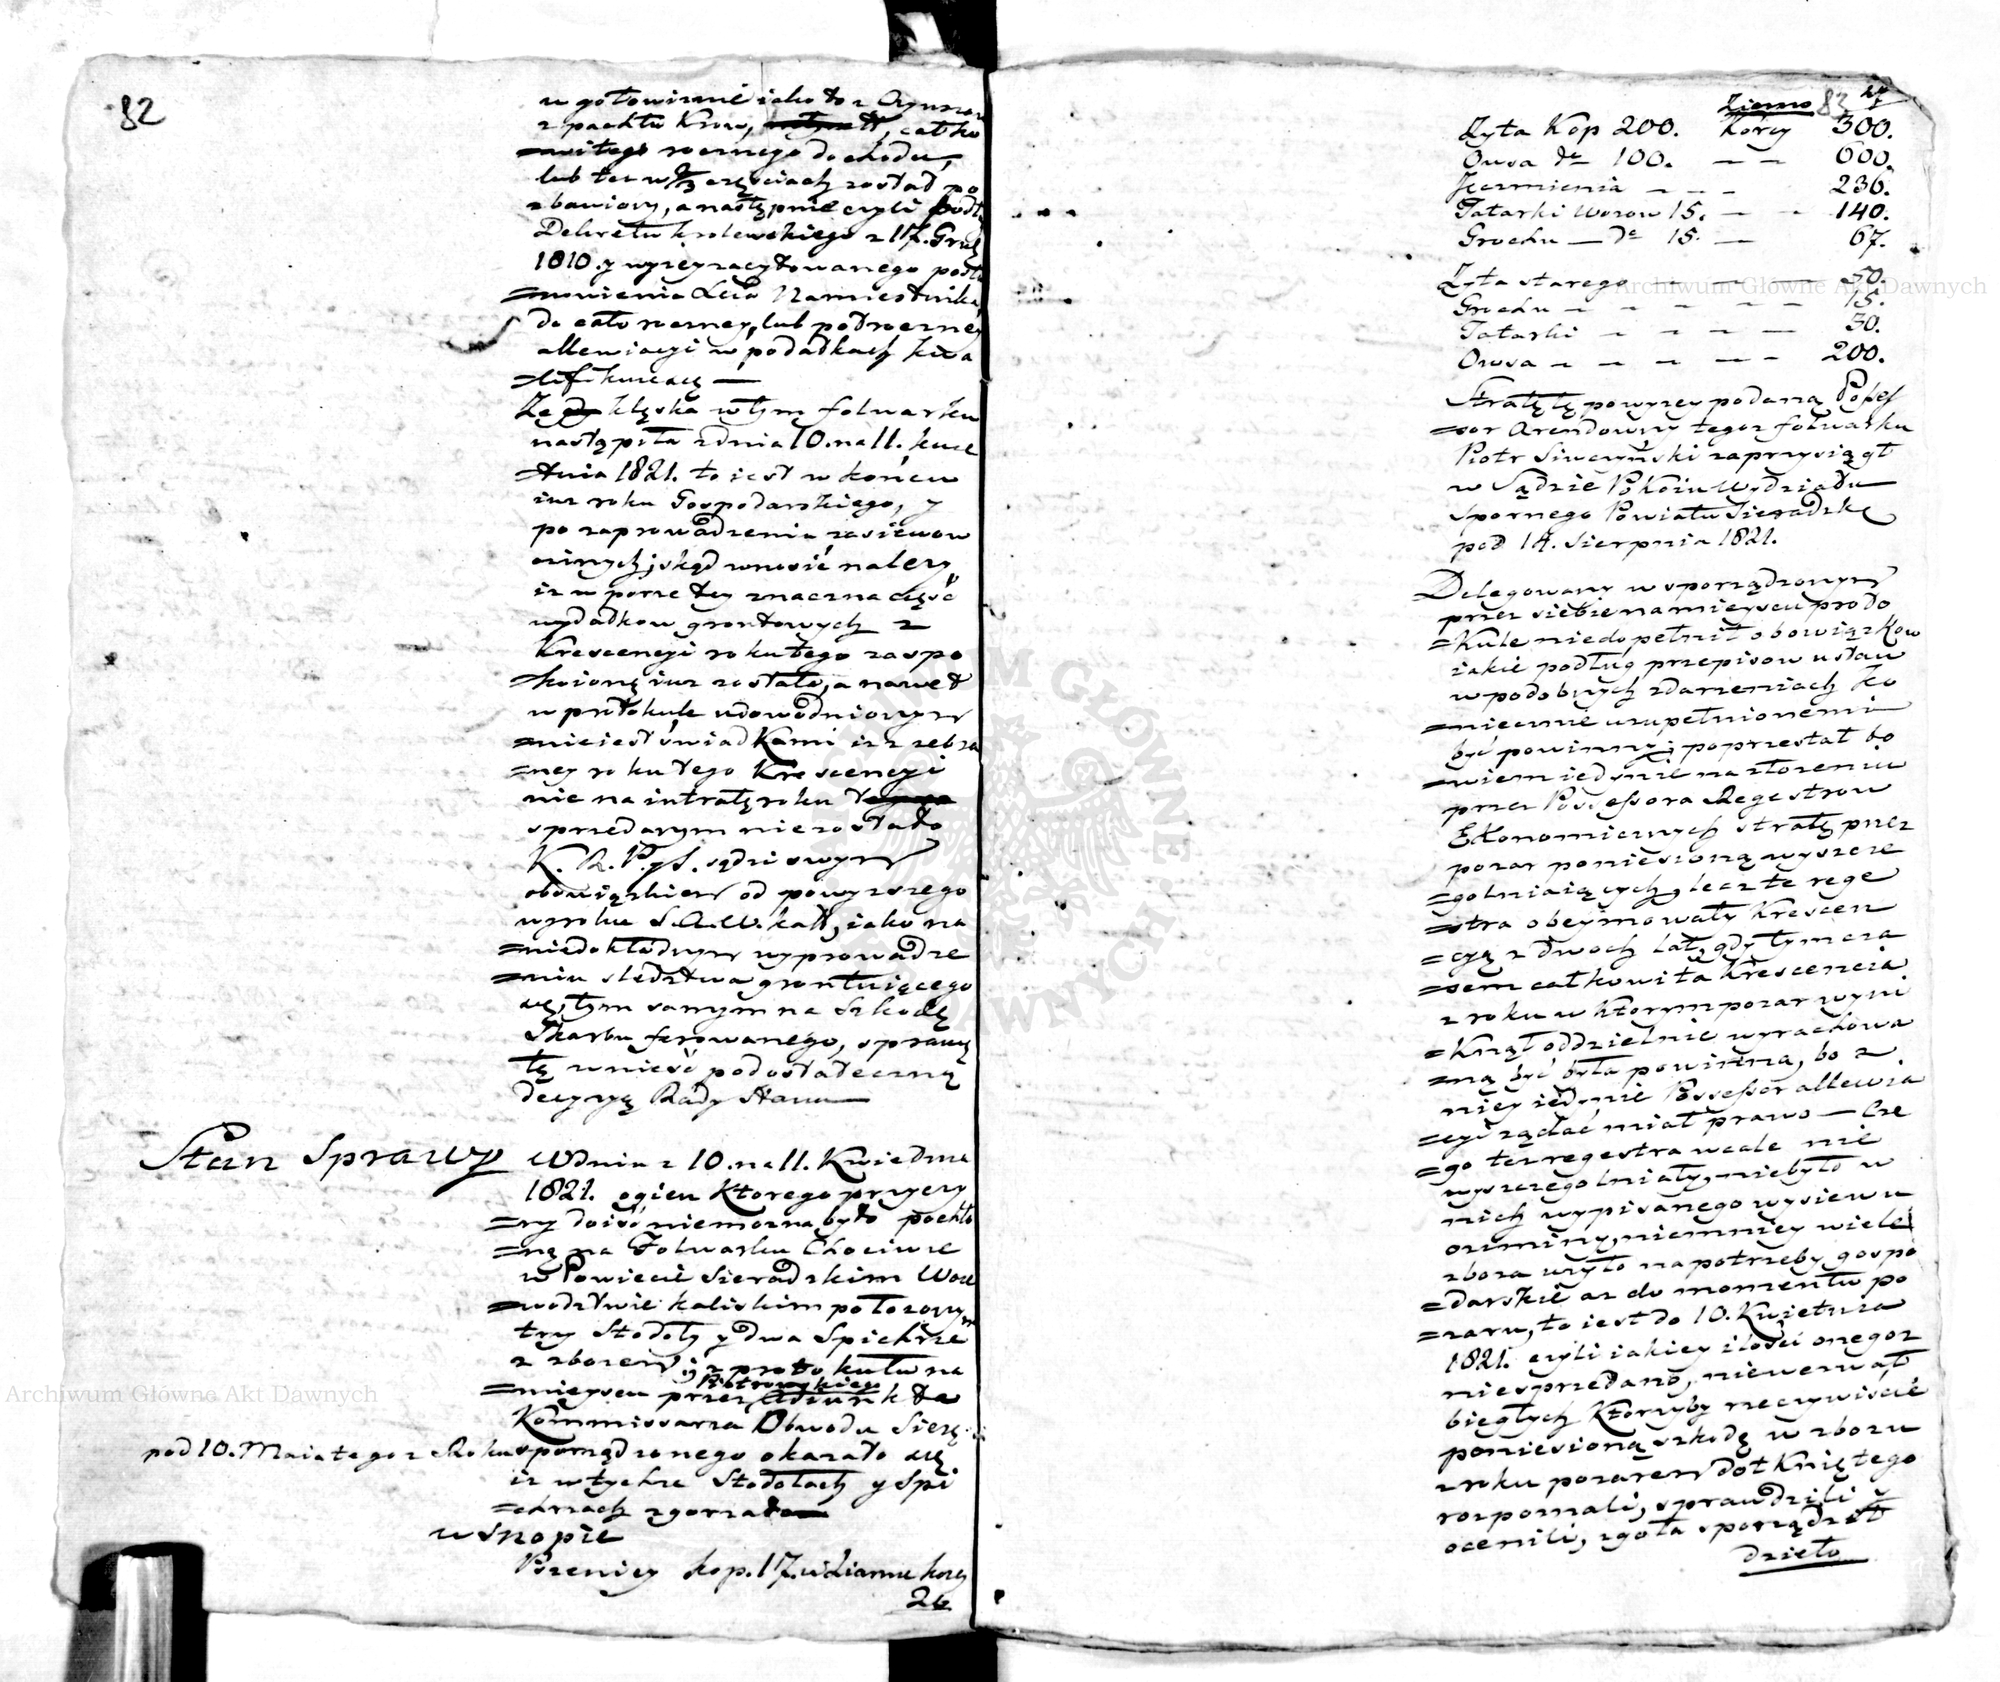 82
w gotowiznie iako to z Czynszow
z pachtu Krow, etc, całko
=witego rocznego dochodu,
lub też w 2/3 częściach został po
zbawiony, a następnie czyli podł:
Dekretu Krolewskiego z 17. Grud
1810. y wyżey zacytowanego posta
=nowienia Xcia Namiestnika
do cało roczney, lub połroczney
allewiacyi w podatkach kwa
=lifikuie się —
Że klęska w tym folwarku
nastąpiła z dnia 10. na 11. kwie
=tnia 1821. to iest w końcu
iuz roku Gospodarskiego, y
po zaprowadzeniu zasiewow
ozimych, skąd wnosić nalezy
iz w porze tey znaczna część
wydatkow grontowych z
Krescencyi roku tego zaspo
=koioną iuz została, a nawet
w protokule udowodnionym
=nie iest swiadkami iz z zebra
=ney roku tego Krescencyi
nic na intratę roku
sprzedanym nie zostało
K. R. P. y S. sądzi swym
obowiązkiem od powyzszego
wyroku S. A. W. kall, iako na
=niedokładnym wyprowadze
=niu sledztwa grontuiącego
się, tym samym na Szkodę
Skarbu ferowanego, sprawę
tę wnieść pod ostateczną
decyzyę Rady Stanu —
Stan Sprawy
W dniu z 10. na 11. Kwietnia
1821. ogień którego przyczy
=ny doiść niemozna było pochło
=nął na Folwarku Chociwie
w Powiecie Sieradzkim Woie
=wodztwie kaliskim połozonym
trzy Stodoły y dwa Spichrze
z zbozem, y z protokułu na
=mieyscu przez Piotrowskiego Adiunkta
Kommissarza Obwodu Sierą:
pod 10. Maia tegoz Roku sporządzonego okazało się
iz w tychze Stodołach y Spi
=chrzach zgorzało
w Snopie
Pszenicy kop. 17. w ziarnie korcy
26
Ziarno 83
Zyta Kop 200. Korcy 300.
Owsa do 100. — — 600.
Jęczmienia — — — 236.
Tatarki Wozow 15. — — 140.
Grochu — do 15. — 67.
Zyta starego — — 50.
Grochu — — — — — 15.
Tatarki — — — — — 30.
Owsa — — — — — 200.
Stratę tę powyzey podaną Posses
=sor Arendowny tegoz folwarku
Piotr Siwczyński zaprzysiągł
w Sądzie Pokoiu Wydziału
Spornego Powiatu Sieradzke
pod 14. Sierpnia 1821.
Delegowany w sporządzonym
przez siebie na mieyscu proto
=kule niedopełnił obowiązkow
iakie podług przepisow ustaw
w podobnych zdarzeniach ko
=niecznie uzupełnionemi
być powinny; poprzestał bo
=wiem iedynie na złozeniu
przez Possessora Regestrow
Ekonomicznych stratę przez
pozar poniesioną wyszcze
=golniaiących, lecz te rege
=stra obeymowały Krescen
=cyą z dwoch lat, gdy tymcza
=sem całkowita Krescencia
z roku w ktorym pozar wyni
=knął oddzielnie wyrachowa
=ną być była powinna, bo z
niey iedynie Possessor allewia
=cyi ząndać miał prawo — Cze
=go tez regestra wcale nie
wyszczegolniały, niebyło w
nich wypisanego wysiewu
oziminy, niemniey wiele
zboza uzyto na potrzeby gospo
=darskie az do momentu po
=zaru, to iest do 10. Kwietnia
1821. czyli iakiey ilości onegoz
niesprzedano, niewezwał
biegłych ktorzyby rzeczywiście
poniesioną szkodę w zbozu
z roku pozarem dotkniętego
rozpoznali, sprawdzili y
ocenili, zgoła sporządził
dzieło
Archiwum Główne Akt Dawnych
Archiwum Główne Akt Dawnych